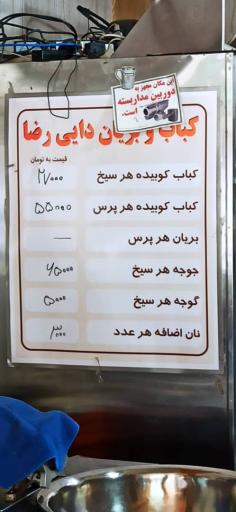 این مکان مجهز به
دوربین مداربسته
است.
کباب و بریان دایی رضا
قیمت به تومان
کباب کوبیده هر سیخ ۲۷۰۰۰
کباب کوبیده هر پرس ۵۵۰۰۰
بریان هر پرس —
جوجه هر سیخ ۲۵۰۰۰
گوجه هر سیخ ۵۰۰۰
نان اضافه هر عدد ۳۰۰۰